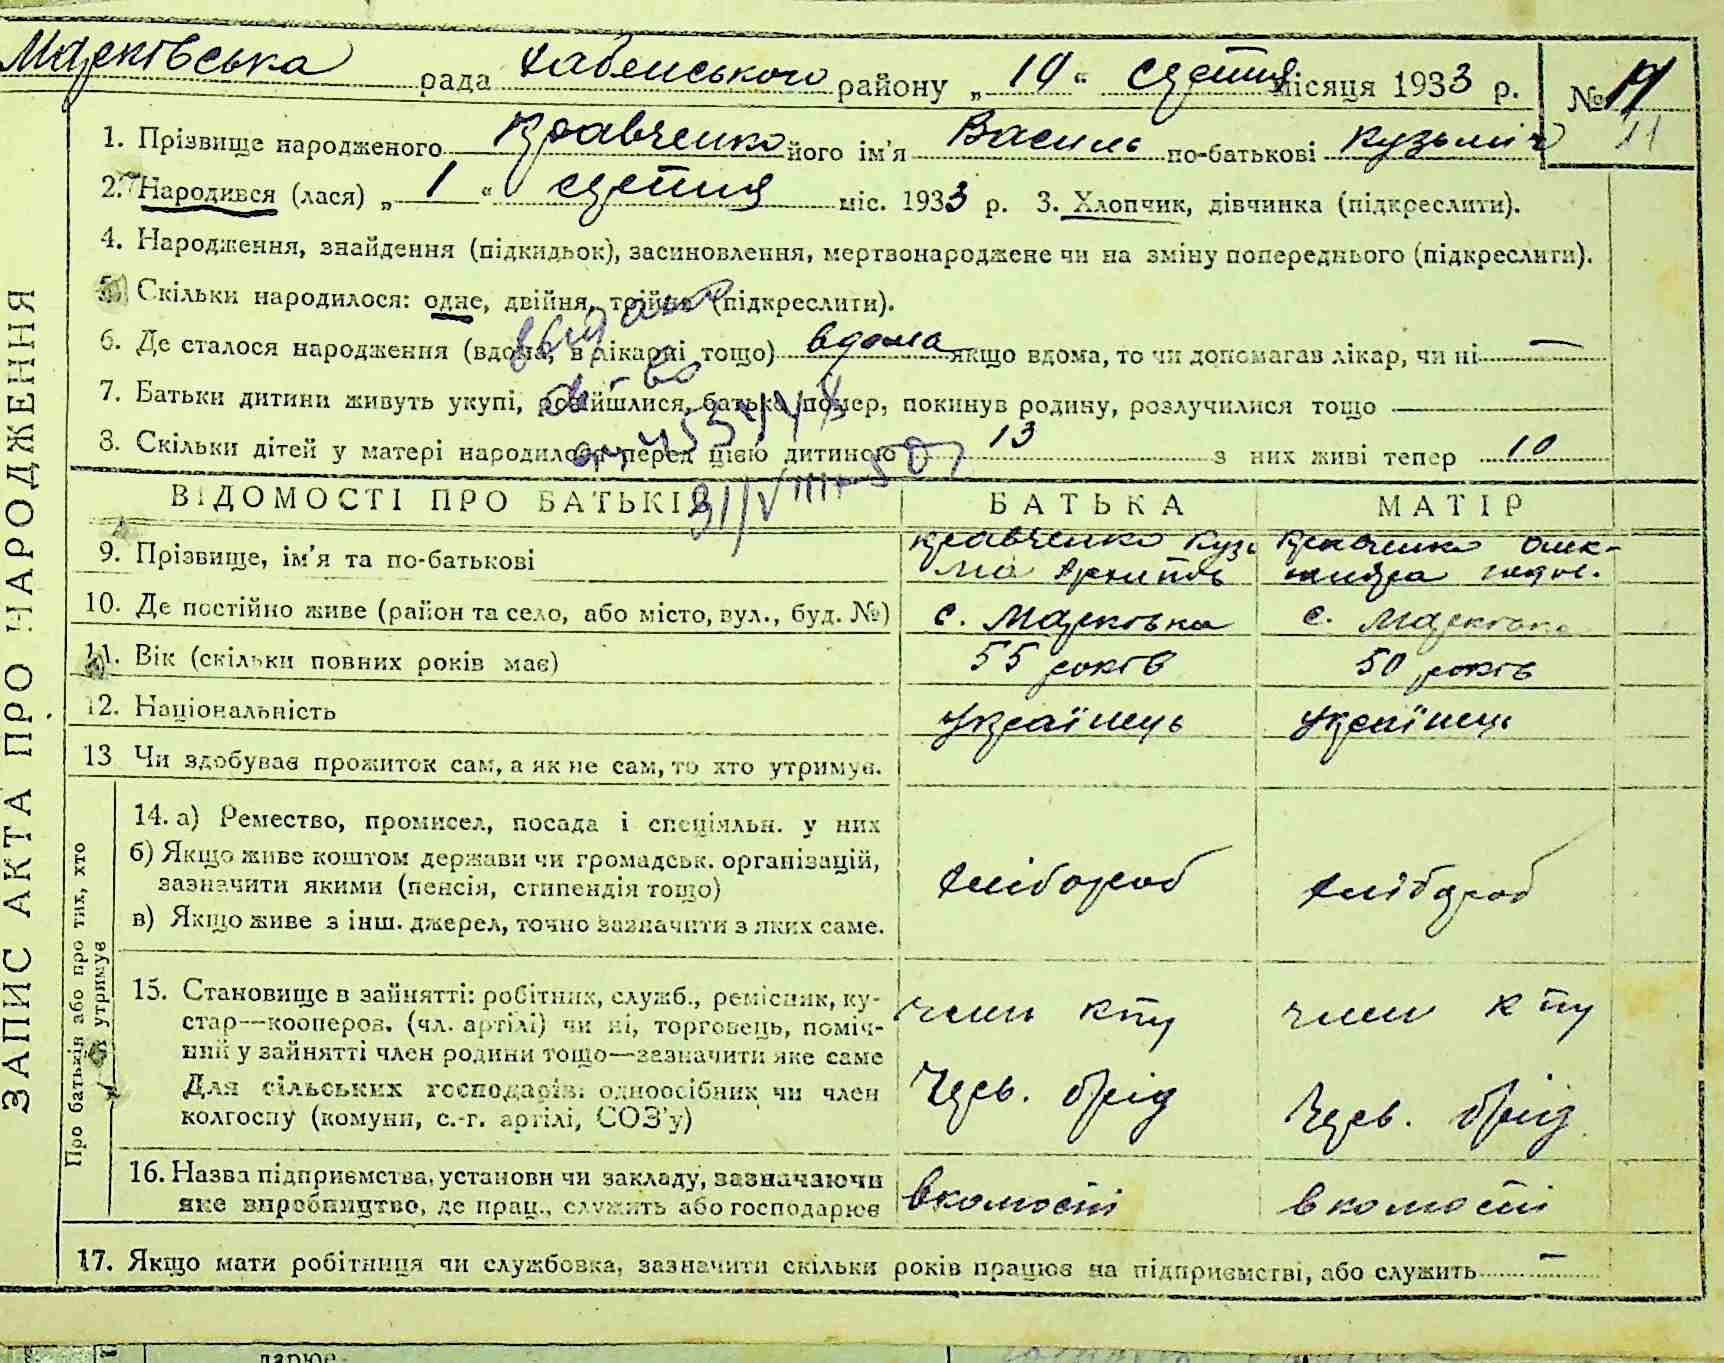 Марківська рада Хабенського району „ 19 “ серпня місяця 1933 р. № 11
11
1. Прізвище народженого Кравченко його ім'я Василь по-батькові Кузьміч
2. Народився (лася) „ 1 “ серпня міс. 1933 р. 3. Хлопчик, дівчинка (підкреслити).
4. Народження, знайдення (підкидьок), засиновлення, мертвонароджене чи на зміну попереднього (підкреслити).
5. Скільки народилося: одне, двійня, трійня (підкреслити).
6. Де сталося народження (вдома, в лікарні тощо) вдома якщо вдома, то чи допомагав лікар, чи ні —
7. Батьки дитини живуть укупі, розійшлися, батько помер, покинув родину, розлучилися тощо
8. Скільки дітей у матері народилося перед цією дитиною 13 з них живі тепер 10
ВІДОМОСТІ ПРО БАТЬКІВ БАТЬКА МАТІР
9. Прізвище, ім'я та по-батькові Кравченко Кузь Кравченко Олек-
ма Архипов
10. Де постійно живе (район та село, або місто, вул., буд. №) с. Марковка с. Марковка
11. Вік (скільки повних років має) 55 років 50 років
12. Національність Українець Українець
13 Чи здобуває прожиток сам, а як не сам, то хто утримує.
14. а) Ремество, промисел, посада і спеціяльн. у них
б) Якщо живе коштом держави чи громадськ. організацій,
зазначити якими (пенсія, стипендія тощо) хлібороб хлібороб
в) Якщо живе з інш. джерел, точно зазначити з яких саме.
15. Становище в зайнятті: робітник, служб., ремісник, ку-
стар—кооперов. (чл. артілі) чи ні, торговець, поміч- член член
ний у зайнятті член родини тощо—зазначити яке саме
Для сільських господарів: одноосібник чи член Черв. Черв.
колгоспу (комуни, с.-г. артілі, СОЗ'у)
16. Назва підприємства, установи чи закладу, зазначаючи
яке виробництво, де прац., служить або господарює
17. Якщо мати робітниця чи службовка, зазначити скільки років працює на підприємстві, або служить —
ЗАПИС АКТА ПРО НАРОДЖЕННЯ
Про батьків або про тих, хто
їх утримує
видано
св-во
31/VIII-50
дарює